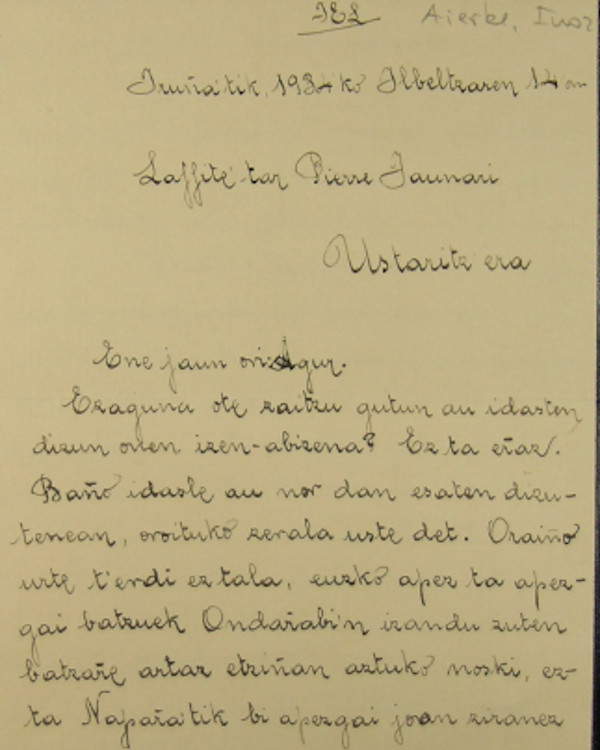 JEL Aierbe, Inoz
Iruñatik, 1934 ko Ilbeltzaren 14 an
Laffite' tar Pierre Jaunari
Ustaritz era
Ene jaun ori: Agur.
Ezaguna ote zaitzu gutun au idasten
dizun onen izen-abizena? Ez ta eŕaz.
Baño idasle au nor dan esaten dizu-
tenean, oroituko zerala uste det. Oraiño
urte t'erdi ez tala, euzko apez ta apez-
gai batzuek Ondaŕabi'n izandu zuten
batzaŕe artaz etziñan aztuko noski, ez-
ta Napaŕa'tik bi apezgai joan ziranez